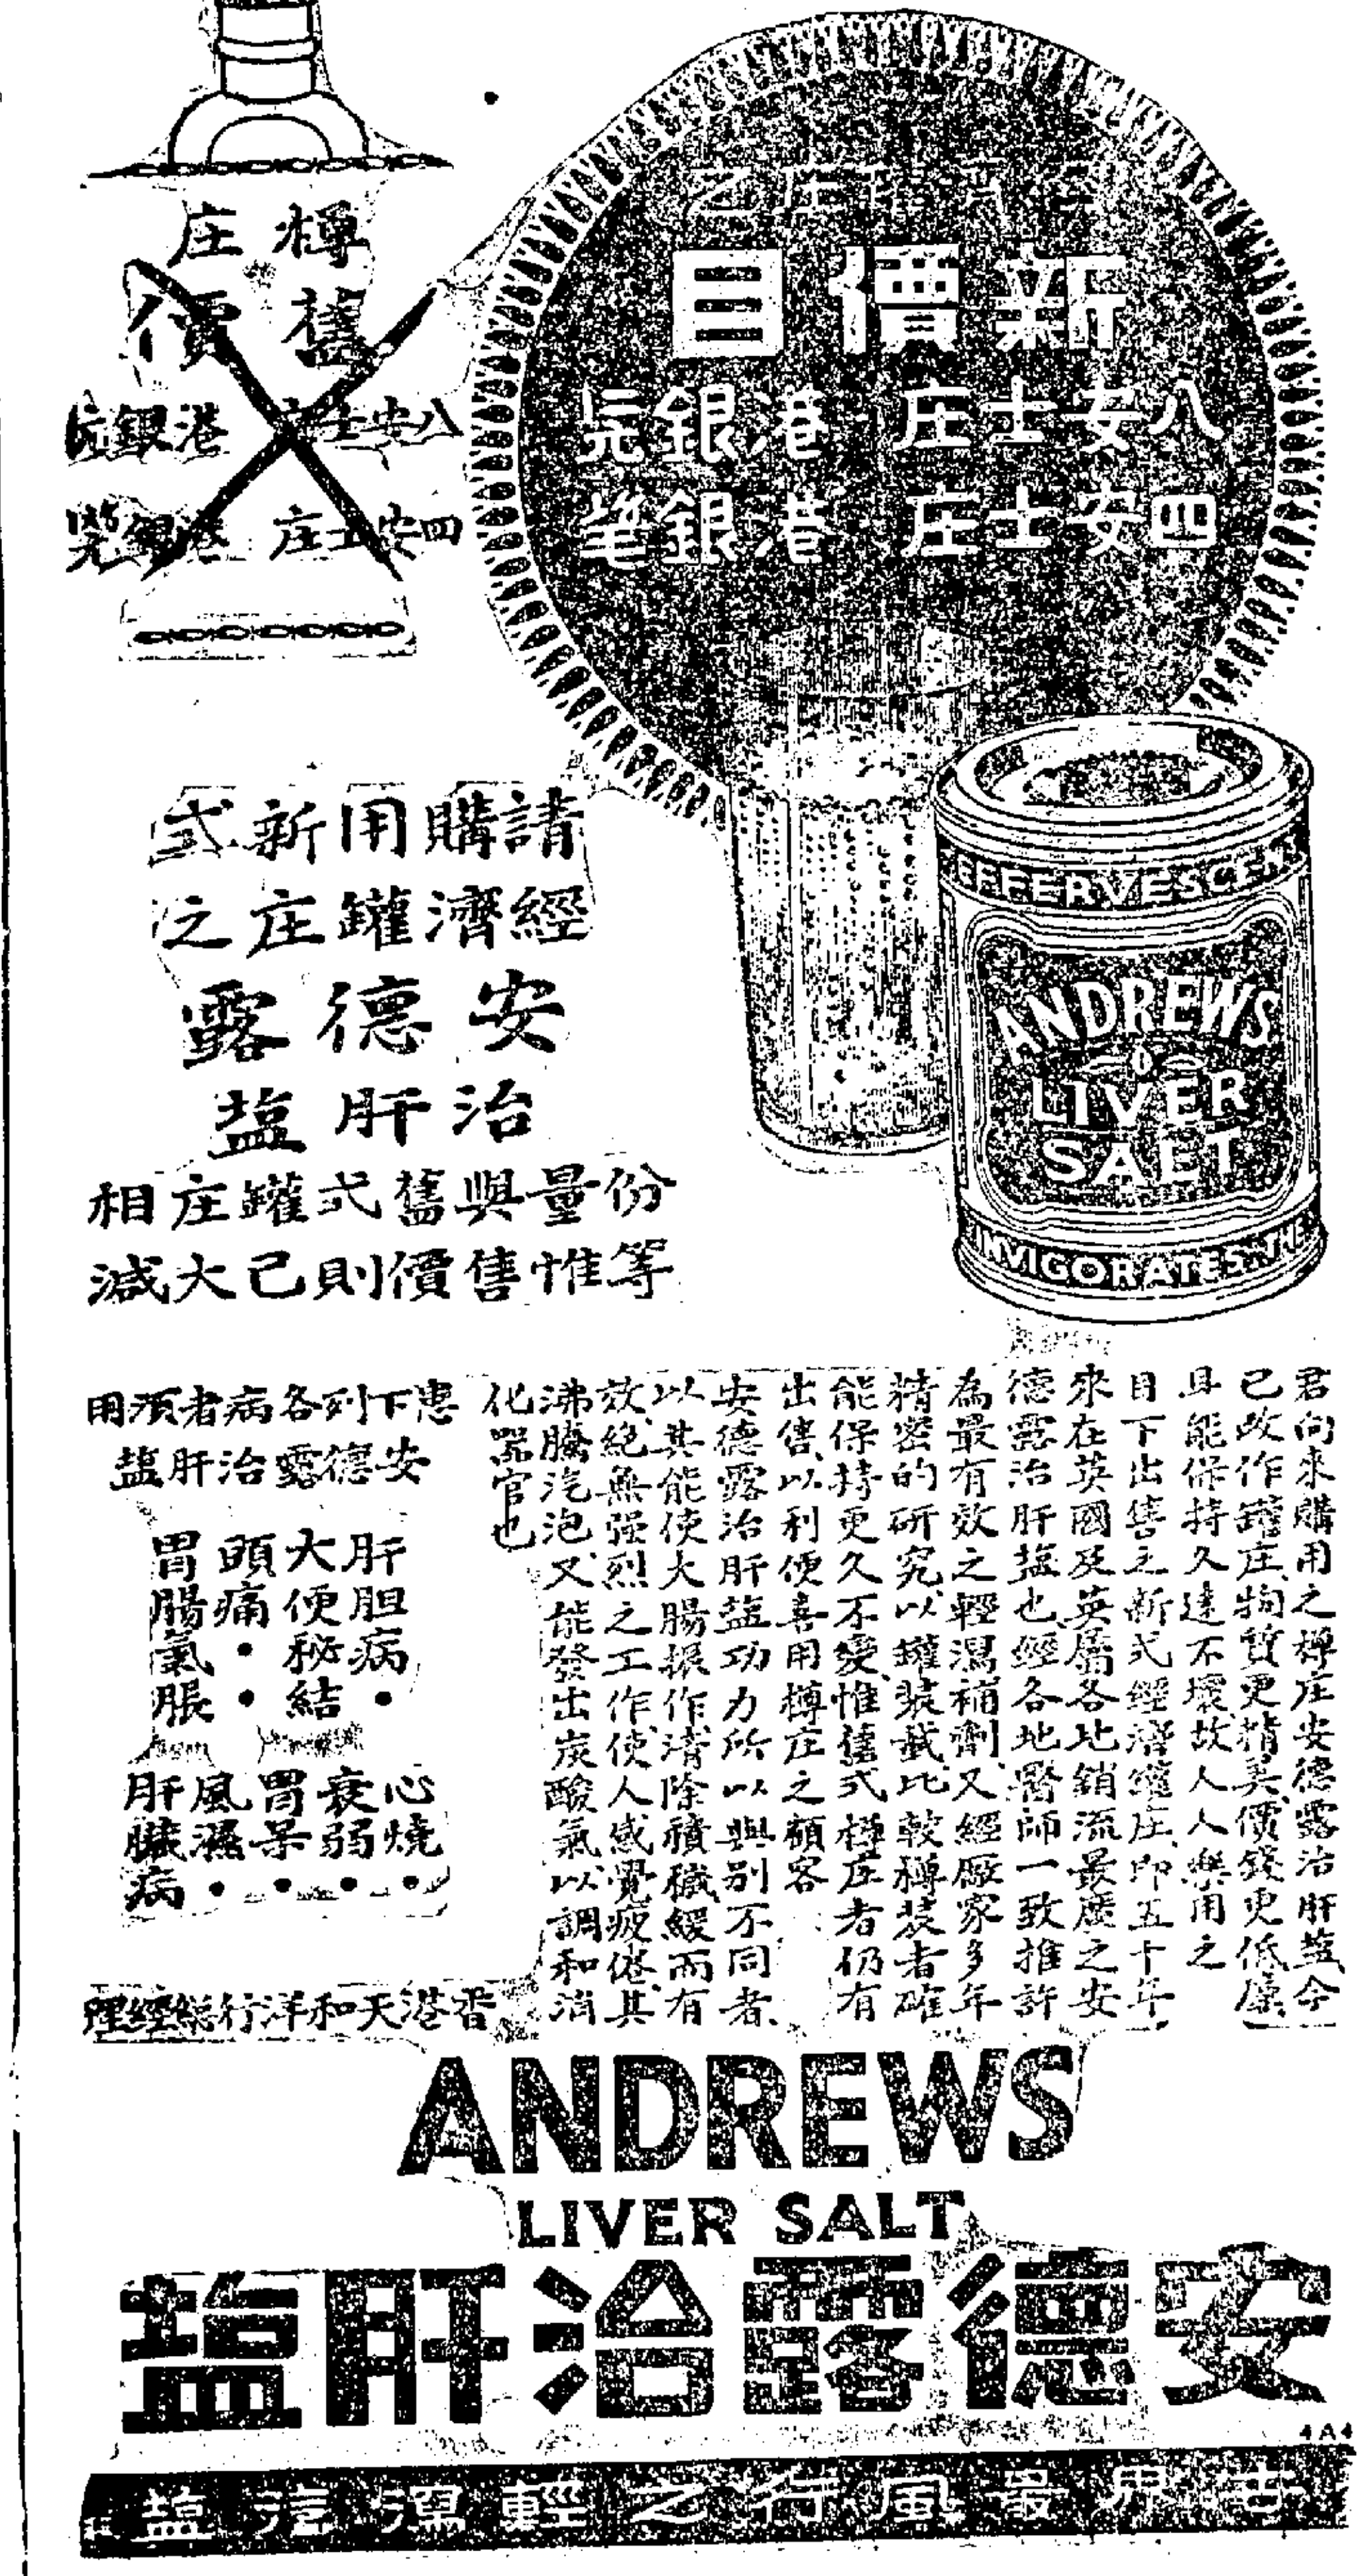 樽庄
舊價
八安士庄 港銀
四安士庄 港銀
之
新價目
八安士庄 港銀元
四安士庄 港銀
EFFERVESCEN
ANDREWS
LIVER
SALT
INVIGORATES THE
請購用新式
經濟罐庄之
安德露
治肝塩
份量與舊式罐庄相
等惟售價則已大減
君向來購用之樽庄安德露治肝塩今
已改作罐庄物質更精美價錢更低廉
且能保持久遠不壞故人人樂用之
目下出售之新式經濟罐庄即五十年
來在英國及英屬各地銷流最廣之安
德露治肝塩也經各地醫師一致推許
為最有效之輕瀉補劑又經廠家多年
精密的研究以罐裝載比較樽裝者確
能保持更久不變惟舊式樽庄者仍有
出售以利便喜用樽庄之顧客
安德露治肝塩功力所以與別不同者
以其能使大腸振作清除積穢緩而有
效絕無强烈之工作使人感覺疲倦其
沸騰汽泡又能發出炭酸氣以調和消
化器官也
患下列各病者須用
安德露治肝塩
肝胆病・
大便秘結
頭痛・・
胃腸氣脹
心燒・
衰弱・
胃呆・
風濕・
肝臟病
香港天和洋行總經理
ANDREWS
LIVER SALT
安德露治肝塩
4A4
世界最風行之輕瀉塩